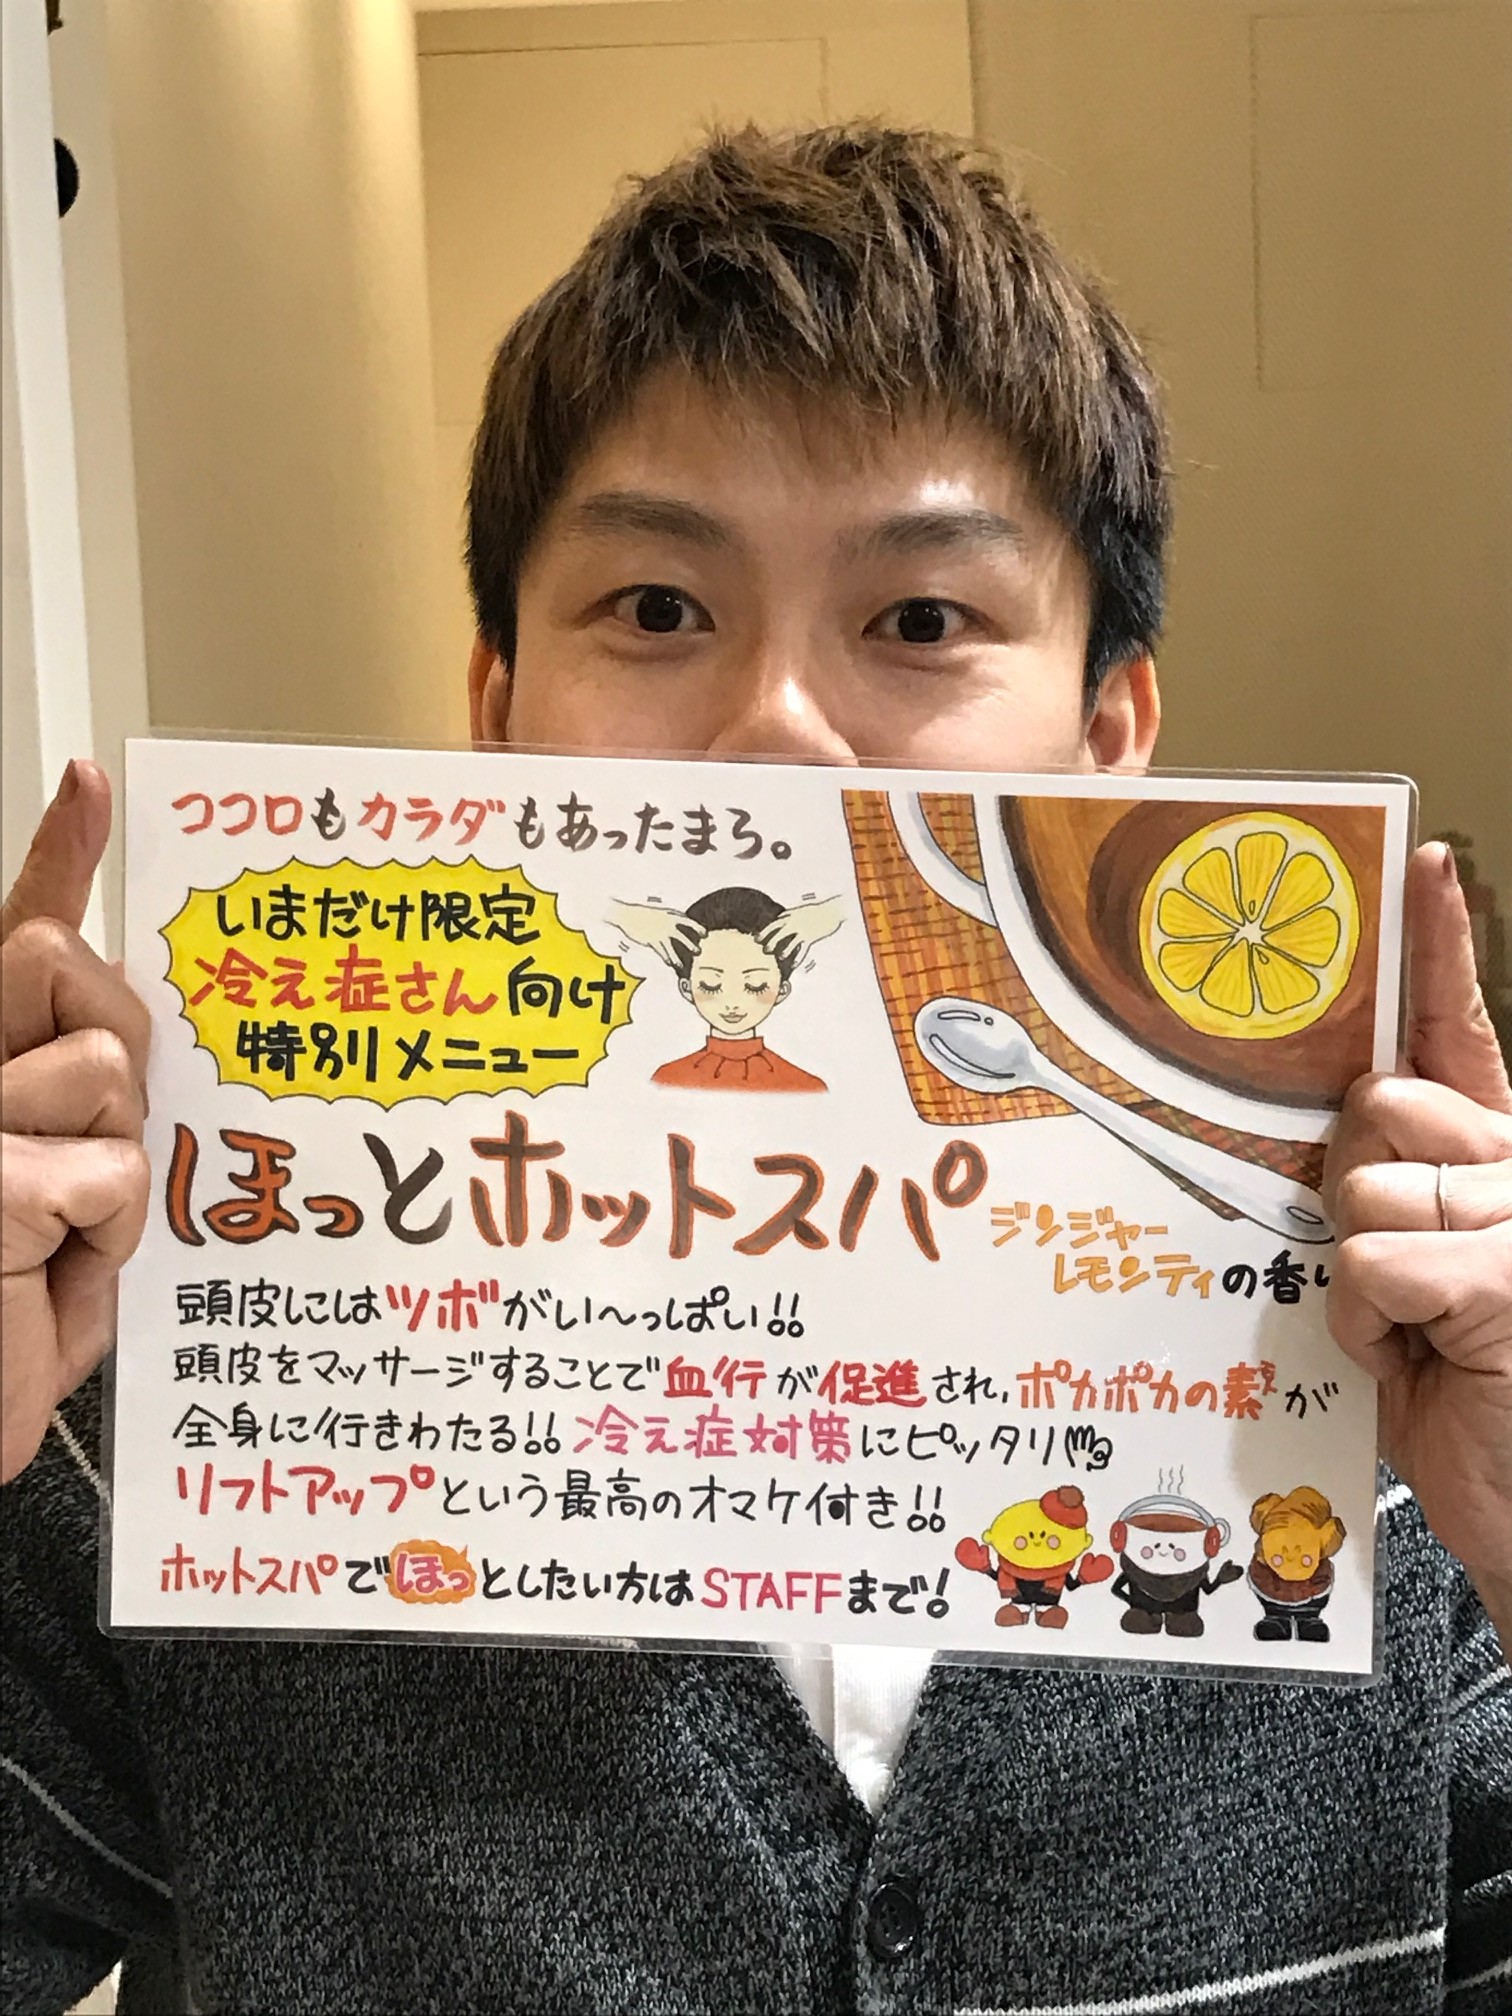 ココロもカラダもあったまろ。
いまだけ限定
冷え症さん向け
特別メニュー
ほっとホットスパ
ジンジャー
レモンティの香り
頭皮にはツボがい〜っぱい!!
頭皮をマッサージすることで血行が促進され、ポカポカの素が
全身に行きわたる!!冷え症対策にピッタリ
リフトアップという最高のオマケ付き!!
ホットスパでほっとしたい方はSTAFFまで!